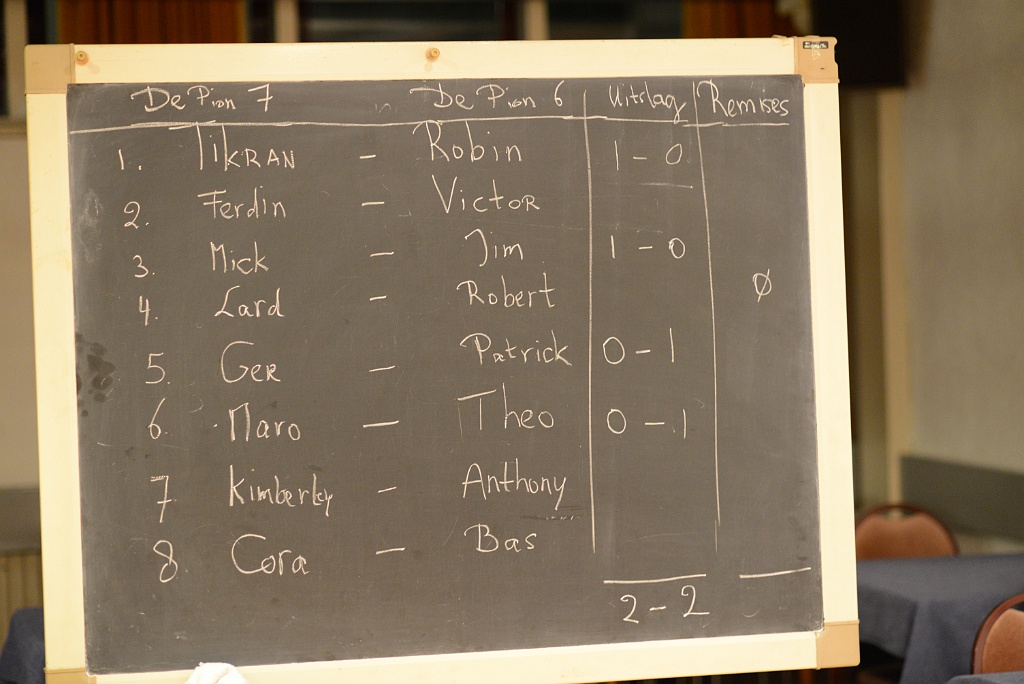 De Pion 7 De Pion 6 Uitslag Remises
1. TIKRAN - Robin 1 - 0
2. Ferdin - Victor
3. Mick - Jim 1 - 0
Ø
4. Lard - Robert
5. Ger - Patrick 0 - 1
6. Maro - Theo 0 - 1
7 Kimberly - Anthony
8. Cora - Bas
2 - 2